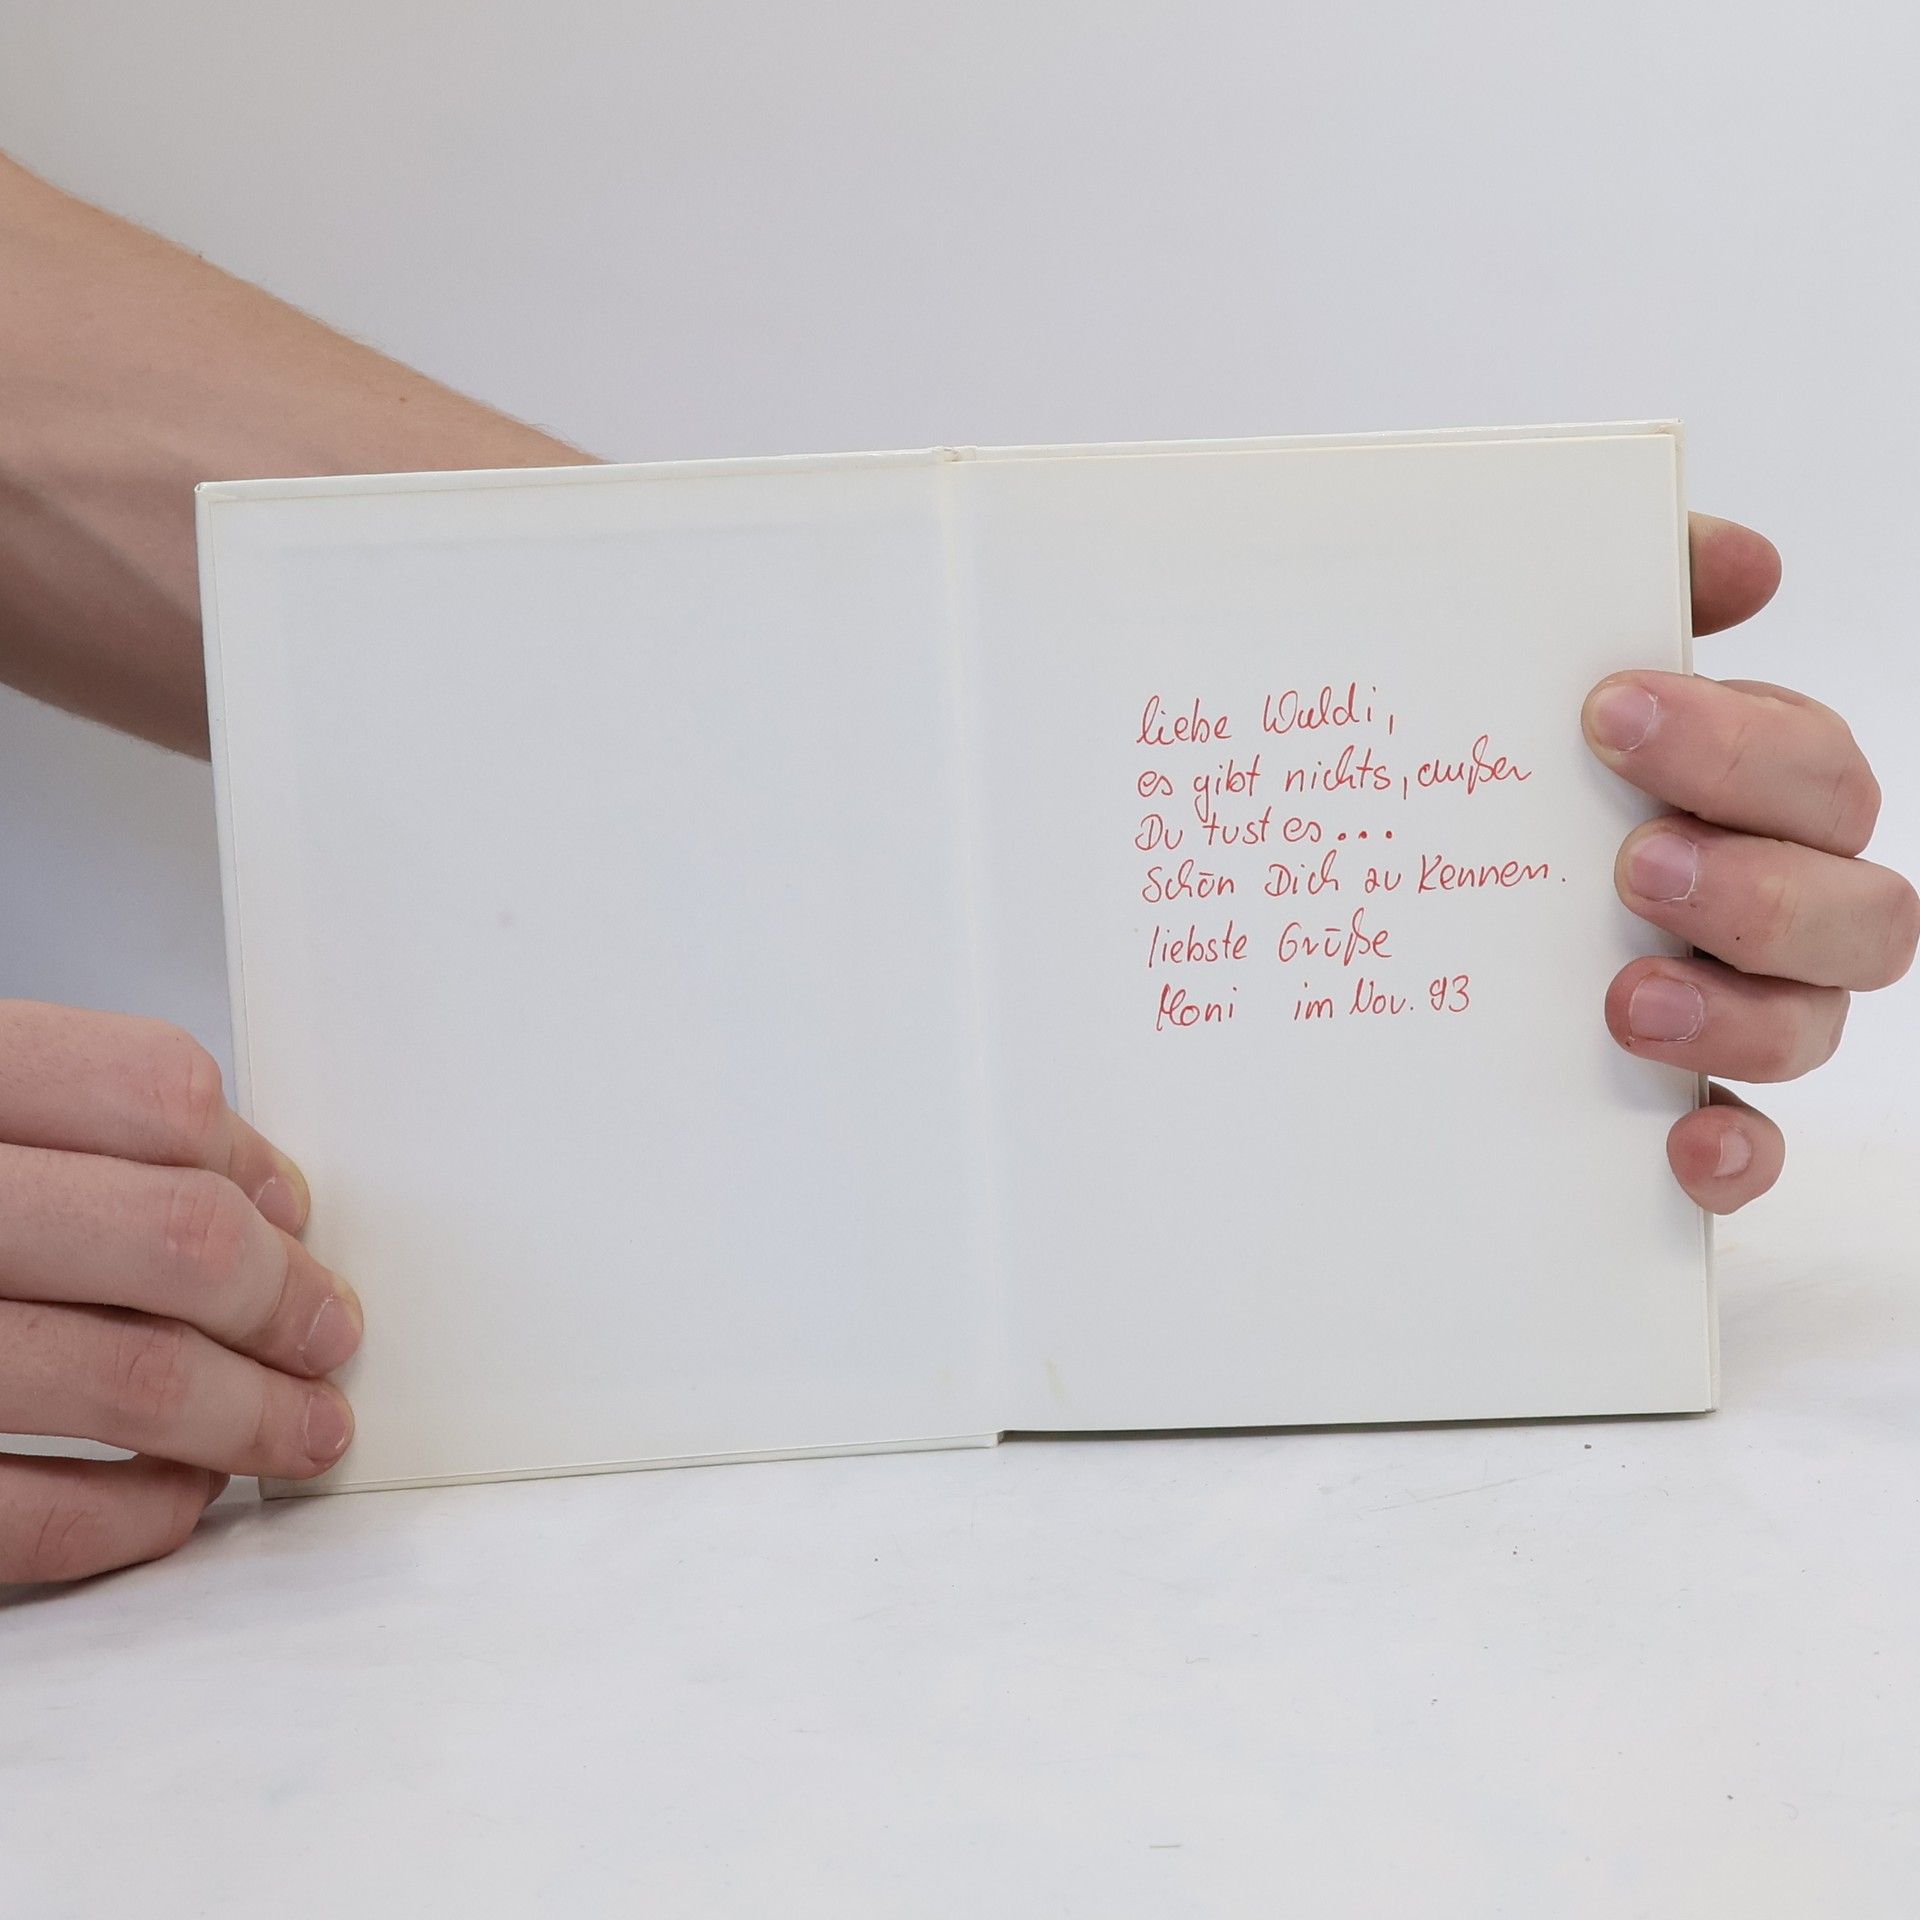 liebe Waldi,
es gibt nichts, außer
Du tust es...
Schön Dich zu kennen.
liebste Grüße
Moni im Nov. 93